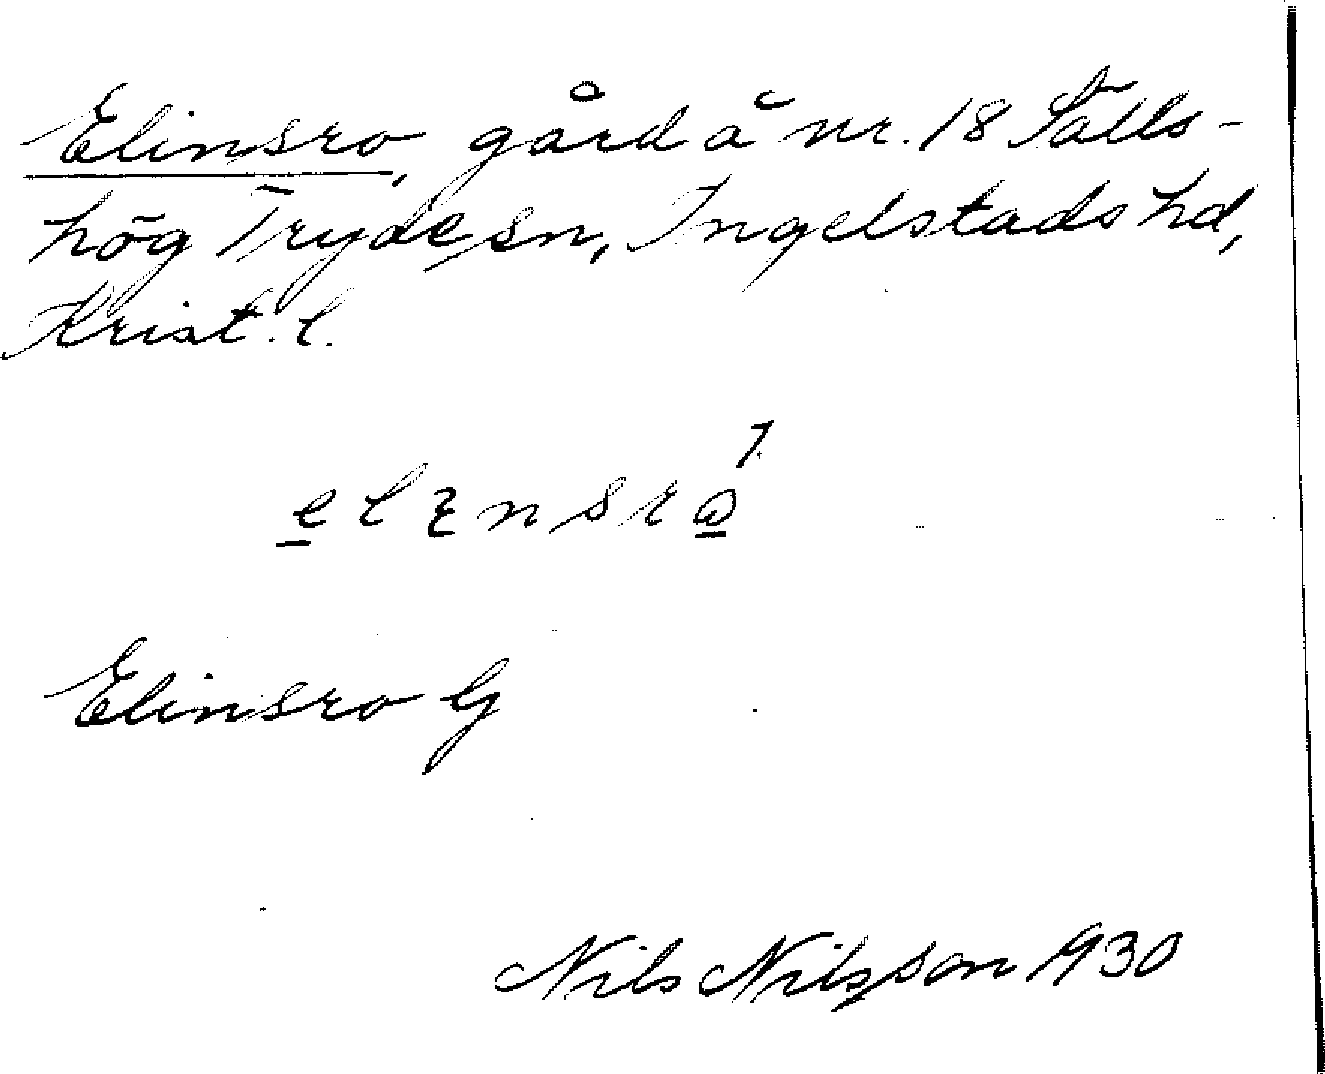 Elinsro, gård å nr. 18 Sälls-
hög Tryde sn, Ingelstads hd,
Krist. l.
Elinsro G
Nils Nilsson 1930